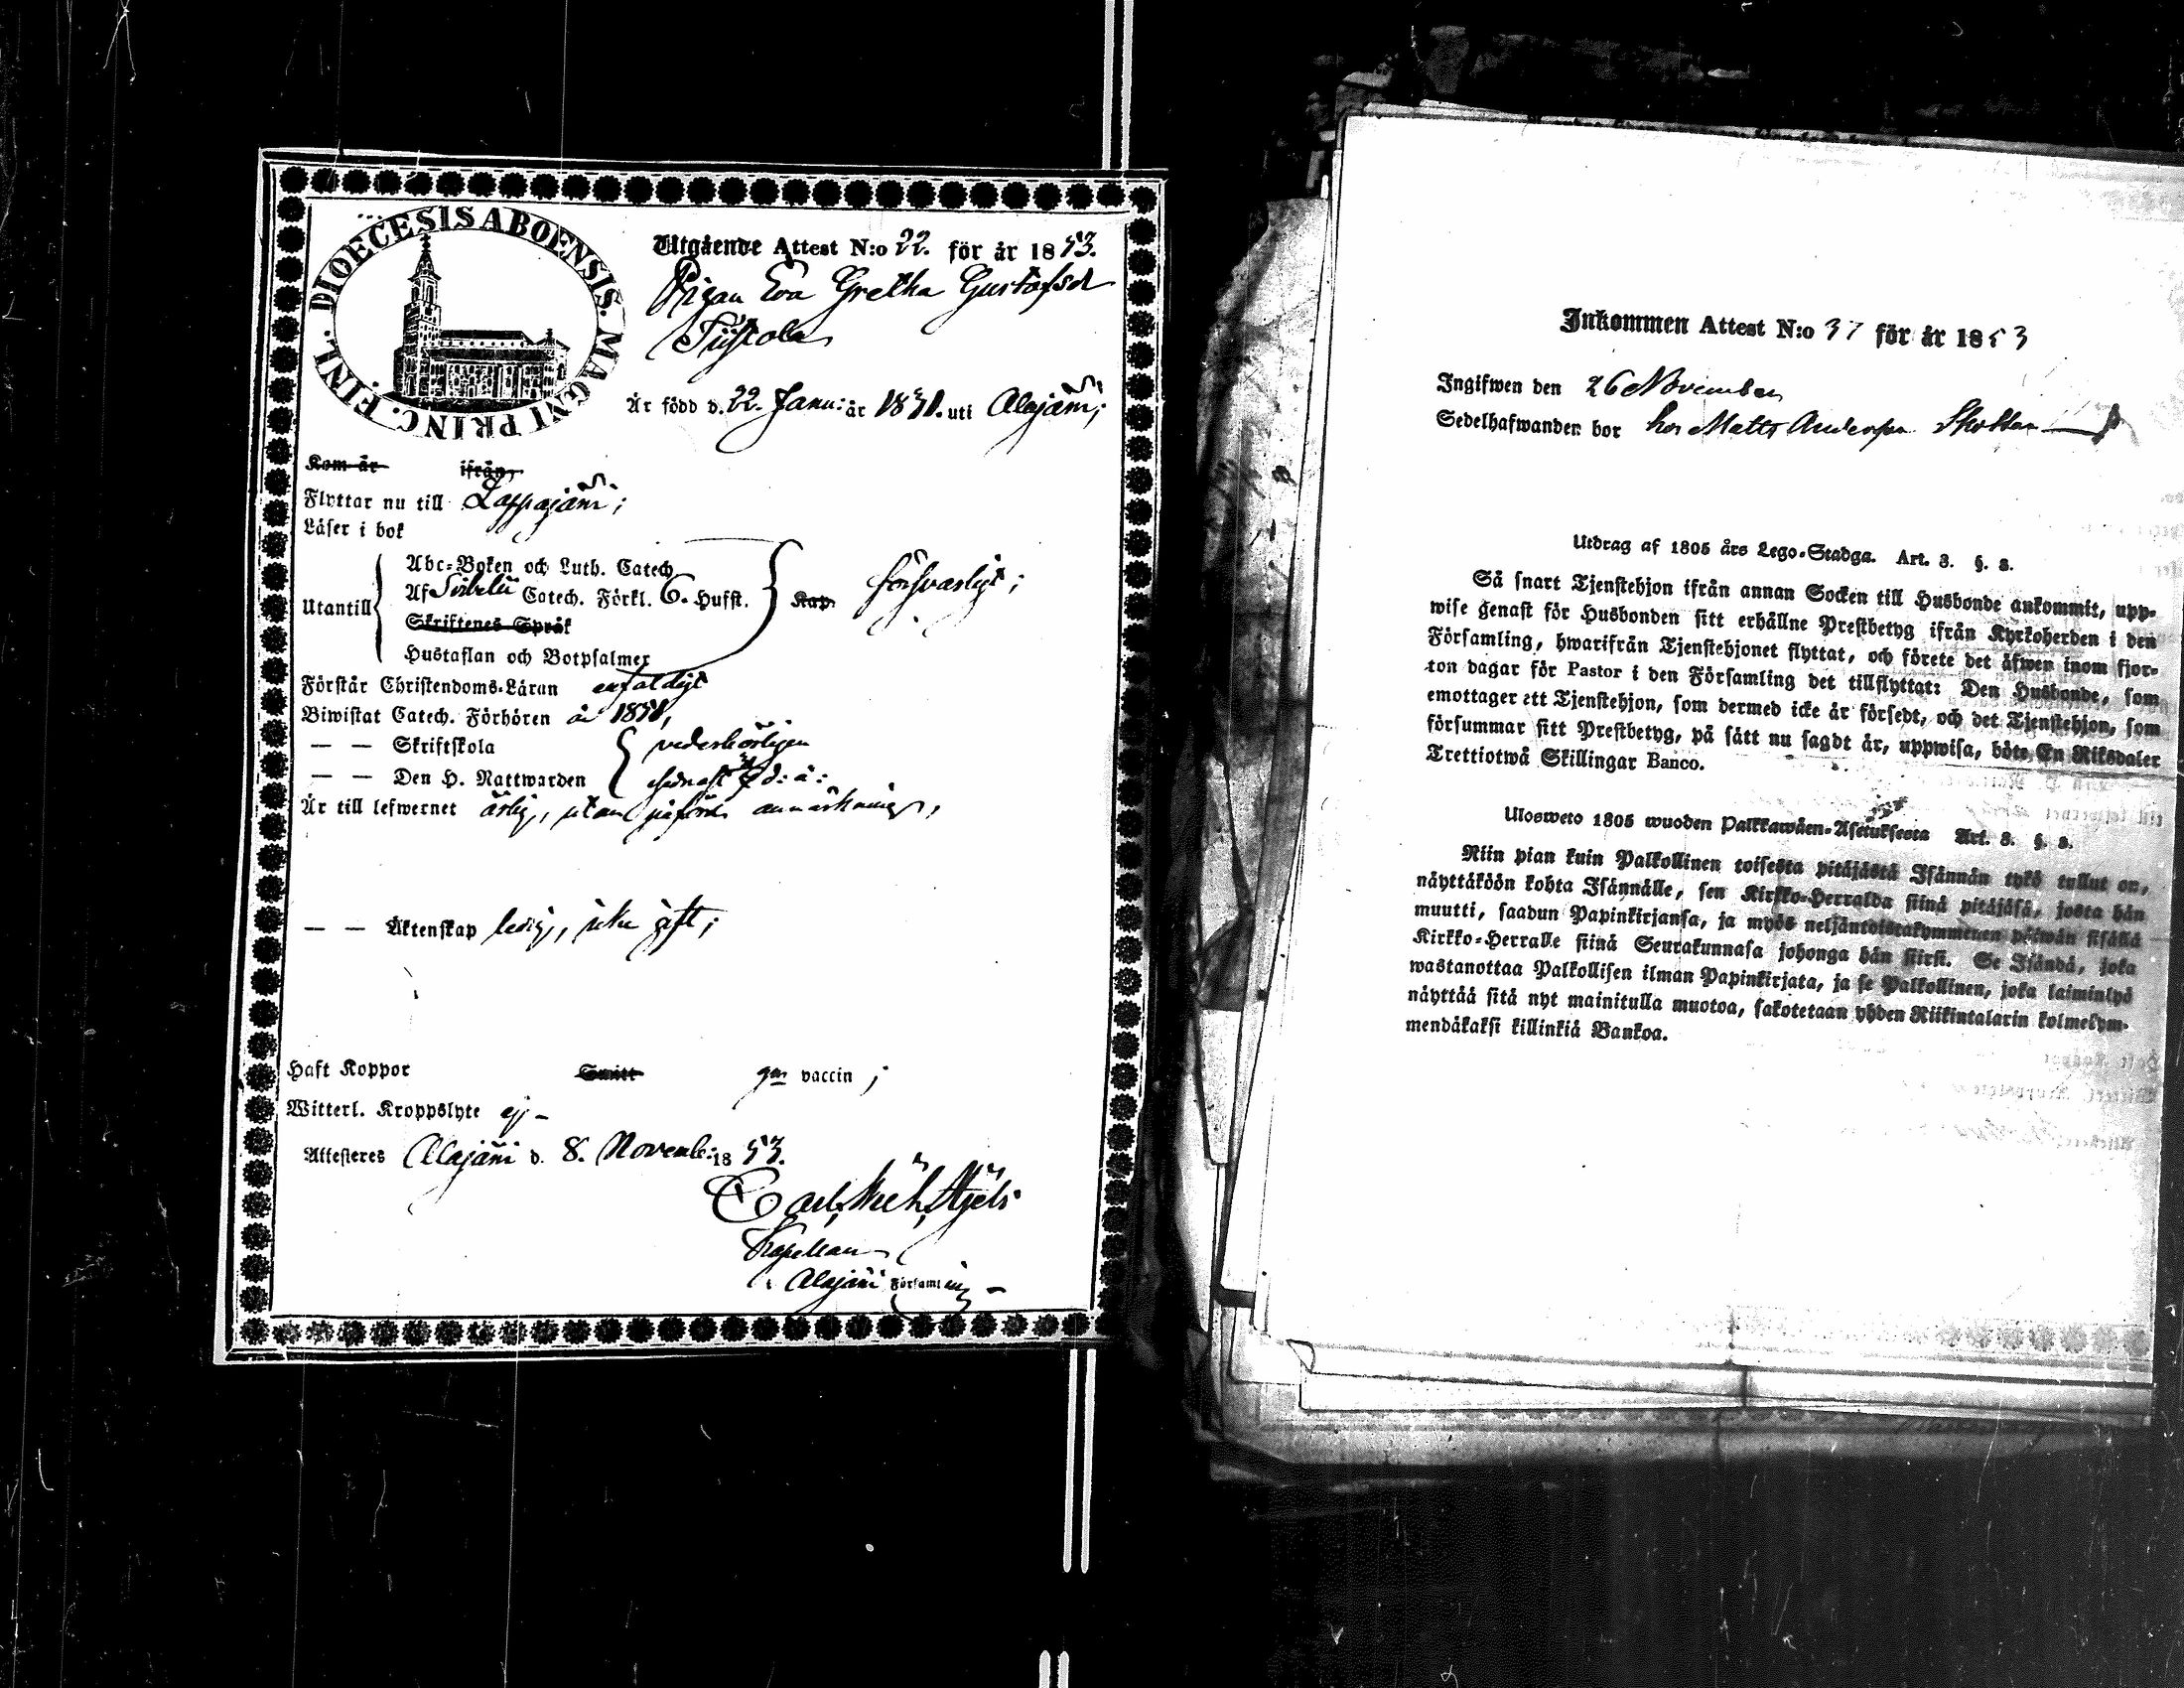 DIOECESIS ABOENSIS. MAGNI PRINC. FINL.
Utgående Attest N:o 22. för år 1853.
Pigan Eva Gretha Gustafsd
Är född d. 22. Janu: år 1831. uti Alajärvi;
Kom år ifrån
Flyttar nu till Lappajärvi;
Läser i bok
Utantill
Abc-Boken och Luth. Catech
Af Svebelii Catech. Förkl. 6. Hufst. Kap. försvarligt;
Skriftenes Språk
Hustaflan och Botpsalmer
Förstår Christendoms-Läran enfaldigt
Biwistat Catech. Förhören år
— — Skriftskola vederbörligen
— — Den H. Nattwarden senast d: å:
Är till lefwernet ärlig, utan anmärkning,
— — Äktenskap ledig, icke gift;
Haft Koppor Smitt gm vaccin;
Witterl. Kroppslyte ej –
Attesteres Alajärvi d. 8. Novemb: 1853.
Carl
Kapellan
i Alajärvi Församling –
Inkommen Attest N:o 37 för år 1853
Ingifwen den 26 November
Sedelhafwanden bor hos Matts Andersson
Utdrag af 1805 års Lego-Stadga. Art. 3. §. 8.
Så snart Tjenstehjon ifrån annan Socken till Husbonde ankommit, upp-
wise genast för Husbonden sitt erhållne Prestbetyg ifrån Kyrkoherden i den
Församling, hwarifrån Tjenstehjonet flyttat, och förete det äfwen inom fjor-
ton dagar för Pastor i den Församling det tillflyttat: Den Husbonde, som
emottager ett Tjenstehjon, som dermed icke är försedt, och det Tjenstehjon, som
försummar sitt Prestbetyg, på sätt nu sagdt är, uppwisa, böte En Riksdaler
Trettiotwå Skillingar Banco.
Ulosweto 1805 wuoden Palkkawäen-Asetuksesta Art. 3. §. 8.
Niin pian kuin Palkollinen toisesta pitäjästä Isännän tykö tullut on,
näyttäköön kohta Isännälle, sen Kirkko-Herralda siinä pitäjäsä, josta hän
muutti, saadun Papinkirjansa, ja myös neljäntoistakymmenen päiwän sisällä
Kirkko-Herralle siinä Seurakunnasa johonga hän siirsi. Se Isändä, joka
wastanottaa Palkollisen ilman Papinkirjata, ja se Palkollinen, joka laiminlyö
näyttää sitä nyt mainitulla muotoa, sakotetaan yhden Riikintalarin kolmekym-
mendäkaksi killinkiä Bankoa.